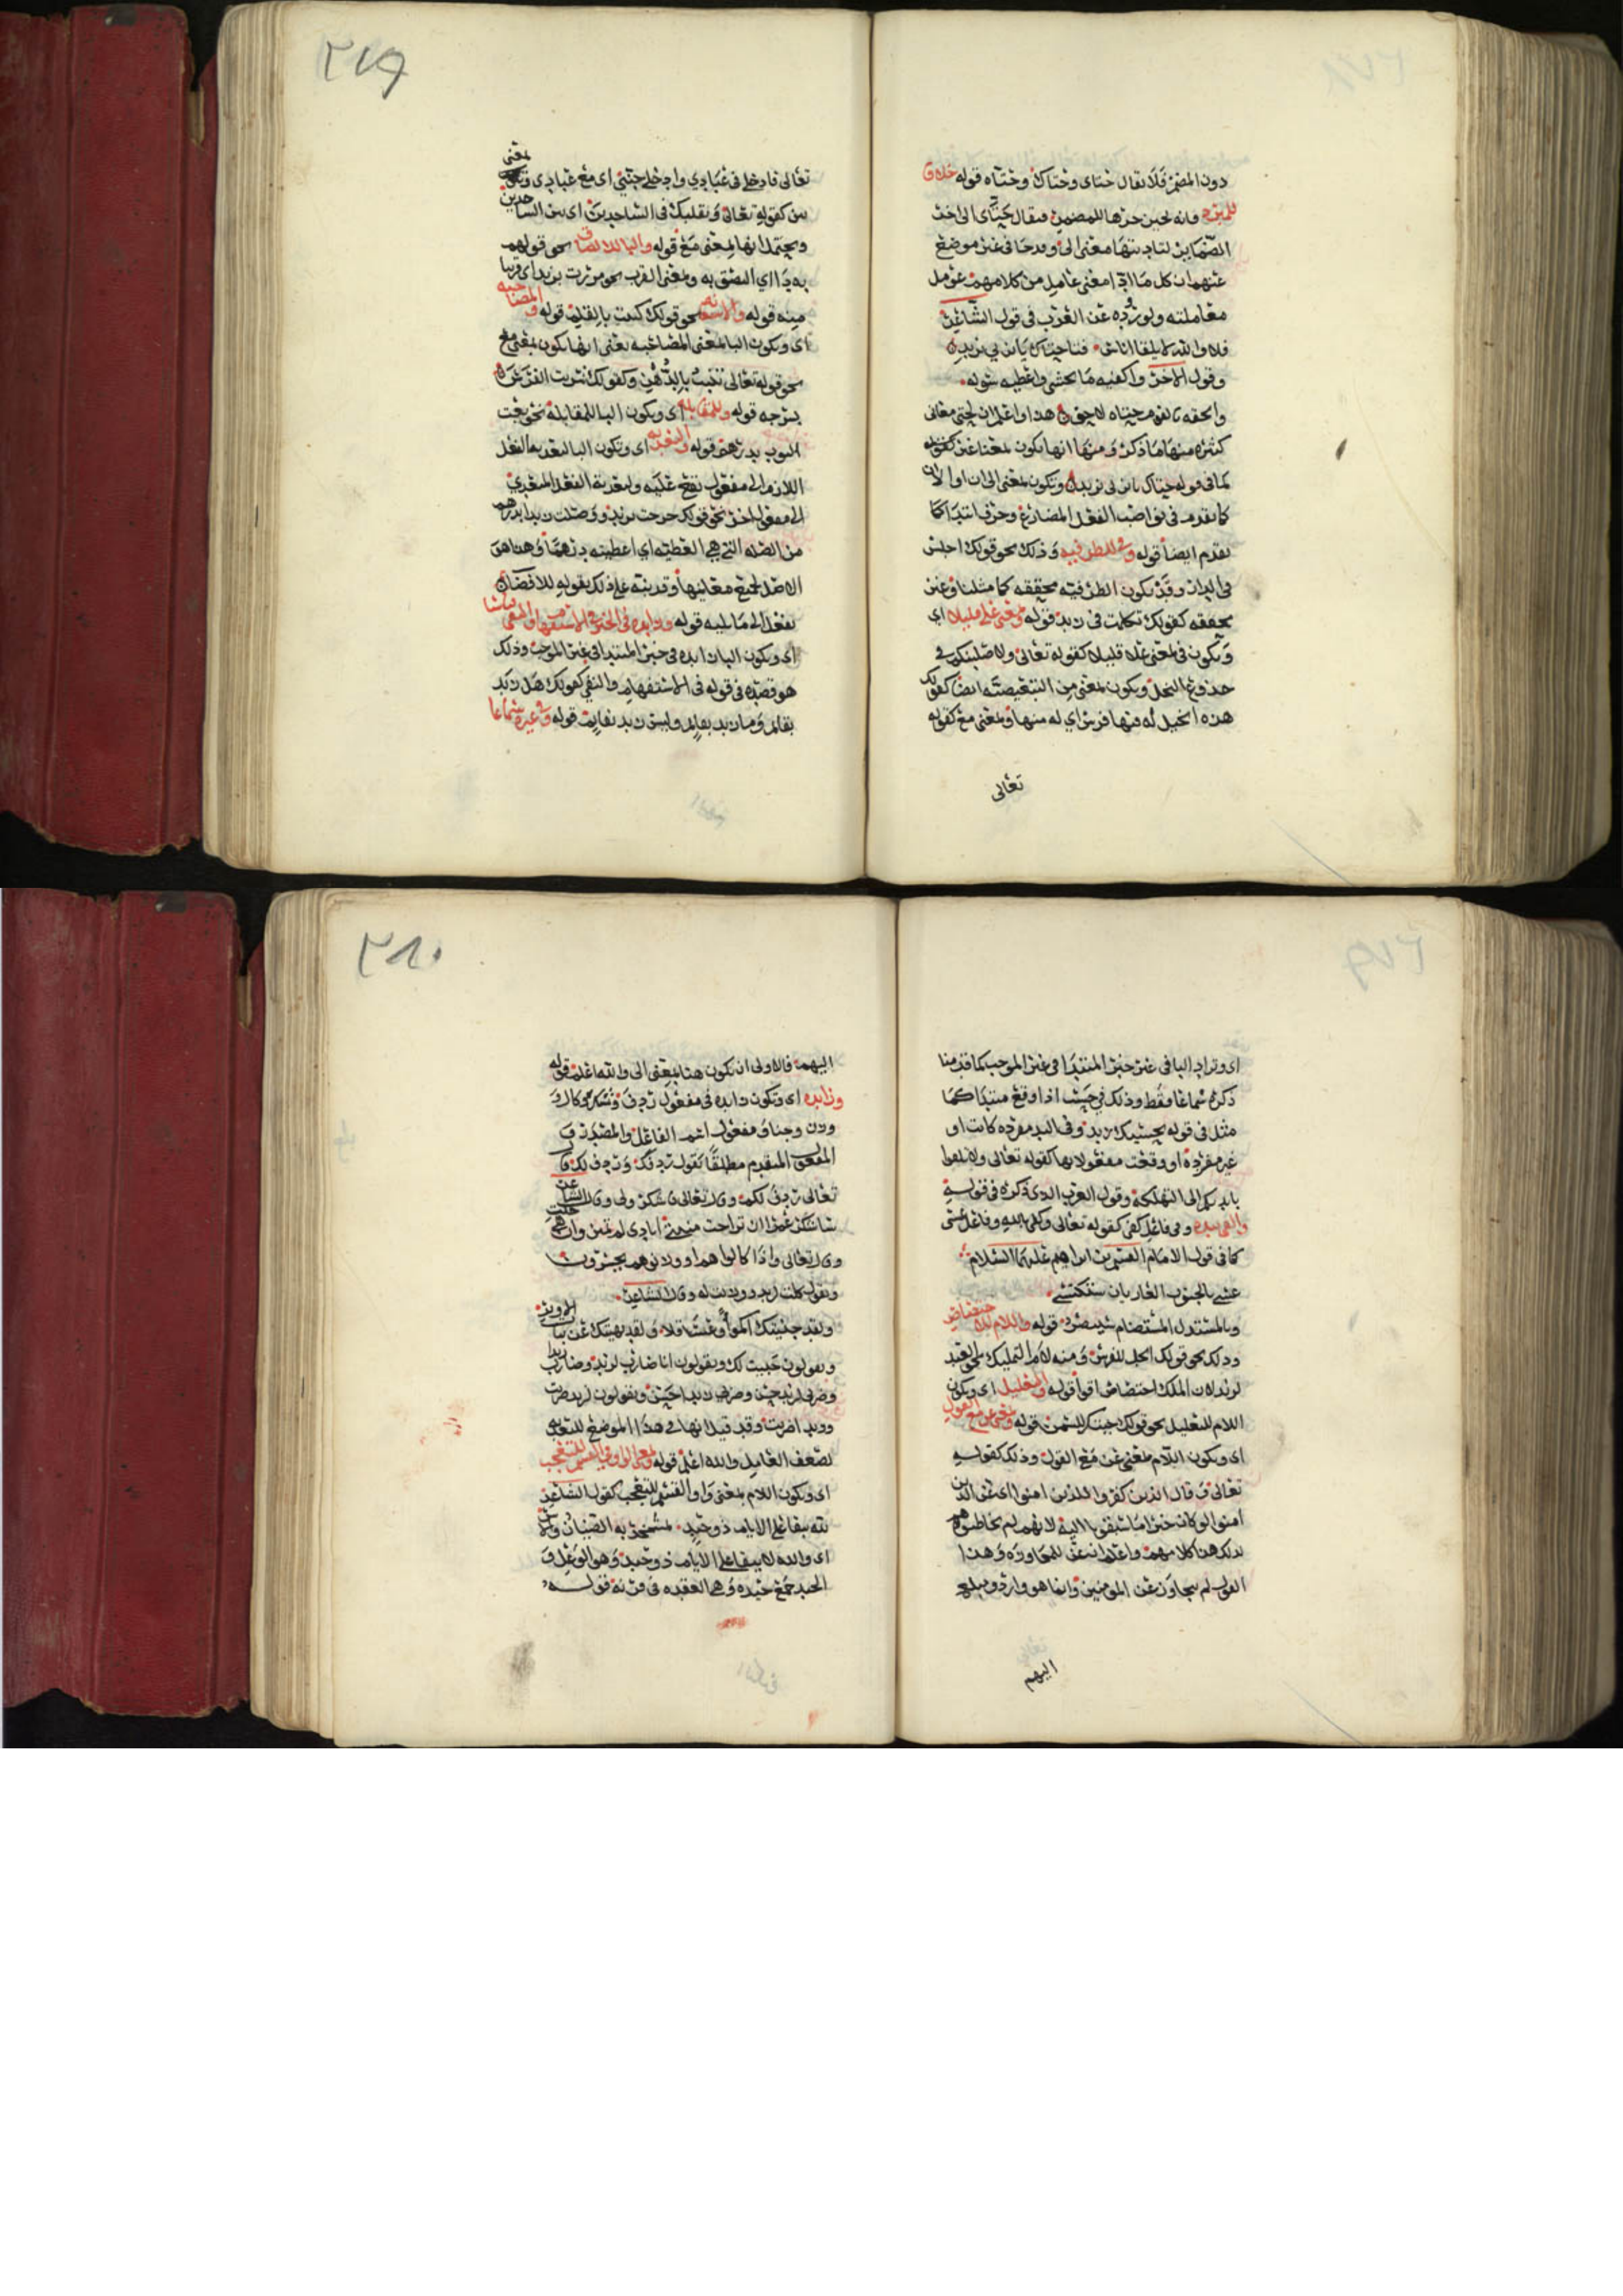 ٢٧٩
دون المضمر فلا يقال حتاى وحتاك وحتاه قوله خلافا
للمبرد فانه يجيز جرها للمضمر فيقال حتاى الى اخر
الضماير لتاديتها معنى الى ومدحا في غير موضع
عنهم ان كل ما ادى معنى عامل من كلامهم عومل
معاملته ولوروده عن العرب في قول الشاعر
فلا والله لا يلقا اناس فتا حتاك يا ابن ابي يزيد
وقول الاخر واكفيه ما يخشى واعطيه سوله
والحقه بالقوم حتاه لاحق هذا واعلم ان لحتى معانى
كثيره منها ما ذكر ومنها انها تكون بمعنا غير كقوله
كما في قوله حتاك يا ابن ابي يزيد وتكون بمعنى الى ان او الا ان
كما تقدم في نواصب الفعل المضارع وحرف ابتدا كما
تقدم ايضا قوله وفي للظرفيه وذلك نحو قولك اجلس
في الدار وقد تكون الظرفيه محققه كما مثلنا وغير
محققه كقولك تكلمت في زيد قوله وبمعنى على قليلا اى
وتكون في بمعنى على قليلا كقوله تعالى ولاصلبنكم في
جذوع النخل وتكون بمعنى من التبعيضيه ايضا كقولك
هذه الخيل له فيها فرس اي له منها وبمعنى مع كقوله
تعالى
تعالى فادخلي في عبادي وادخلي جنتي اى مع عبادى وتكون بمعنى
بين كقوله تعالى وتقلبك في الساجدين اى بين الساجدين
ويحتمل انها بمعنى مع قوله والبا للالصاق نحو قولهم
به دا اي التصق به وبمعنى القرب نحو مررت بزيد اى قريبا
منه قوله والاستعانه نحو قولك كتبت بالقلم قوله والمصاحبه
اى وتكون البا بمعنى المصاحبه يعنى انها تكون بمعنى مع
نحو قوله تعالى تنبت بالدهن وكقولك اشتريت الفرس
بسرجه قوله وللمقابله اى وتكون البا للمقابلة نحو بعت
الثوب بدرهم قوله والتعديه اى وتكون البا لتعديه الفعل
اللازم الى مفعول يقع عليه ولتعدية الفعل المتعدي
الى مفعول اخر نحو قولك خرجت بزيد ووصلت زيدا بدرهم
من الصله التي هي العطيه اي اعطيته درهما وهذا هو
الاصل لجميع معانيها وقد نبه على ذلك بقوله للافضا
بفعل الى ما يليه قوله وزايده في الخبر في الاستفهام والنفي قياسا
اى وتكون البا زايده في خبر المبتدا في غير الموجب وذلك
هو قصده في قوله في الاستفهام والنفي كقولك هل زيد
بقائم وما زيد بقايم وليس زيد بقايم قوله وفي غيره سماعا
٢٨٠
اى وتزاد البا في غير خبر المبتدا في غير الموجب كما قدمنا
ذكره سماعا فقط وذلك في حسب اذا وقع مبتدا كما
مثل في قوله بحسبك زيد وفي اليد مفرده كانت او
غير مفرده او وقعت مفعولا بها كقوله تعالى ولا تلقوا
بايديكم الى التهلكه وقول العرب الذى ذكره في قوله
والقى بيده وفي فاعل كفى كقوله تعالى وكفى بالله وفاعل عشى
كما في قول الامام القسم بن ابراهيم عليهما السلام
عسى بالجنوب العاريات ستكتسي
وبالمستذل المستضام سينصر قوله واللام للاختصاص
وذلك نحو قولك الجل للفرس ومنه لام التمليك نحو العبد
لزيد لان الملك اختصاص اقوا قوله والتعليل اى وتكون
اللام للتعليل نحو قولك جيتك للسمن قوله وبمعنى عن مع القول
اى وتكون اللام بمعنى عن مع القول وذلك كقوله
تعالى وقال الذين كفروا للذين امنوا اى عن الذين
امنوا لو كان خيرا ما سبقونا اليه لانهم لم يخاطبوهم
لذلك هذا كلامهم واعلم ان عن للمجاوزه وهذا
القول لم يجاوز عن المومنين وانما هو وارد ومبلغ
اليهم
اليهم فالاولى ان تكون هنا بمعنى الى والله اعلم قوله
وزايده اى وتكون زايده في مفعول ردف وشكر وكال و
وزن وجنا ومفعول اسم الفاعل والمصدر وفي
المفعول المتقدم مطلقا تقول ردفك وردف لك قال
تعالى ردف لكم وقال تعالى ان اشكر ولي وقال الشاعر
ساشكر عمرا ان تراخت منيتي ايادى لم تمنن وان هي جلت
وقال تعالى واذا كالوا هم او وزنوهم يخسرون
وتقول كلت لزيد ووزنت له وقال الشاعر
ولقد جنيتك اكموا وعساقلا ولقد نهيتك عن بنات الاوبر
ويقولون جنيت لك ويقولون انا ضارب لزيد وضارب زيدا
وضربي لزيد حسن وضربي زيدا حسن ويقولون لزيد ضربت
وزيدا ضربت وقد قيل انها في هذا الموضع للتعديه
لضعف العامل والله اعلم قوله وبمعنى الواو في القسم للتعجب
اى وتكون اللام بمعنى واو القسم للتعجب كقول الشاعر
لله يبقا على الايام ذو حيد بمشمخر به الظيان والاس
اى والله لا يبقا على الايام ذو حيد وهو الوعل و
الحيد جمع حيده وهي العقده في قرنه قوله